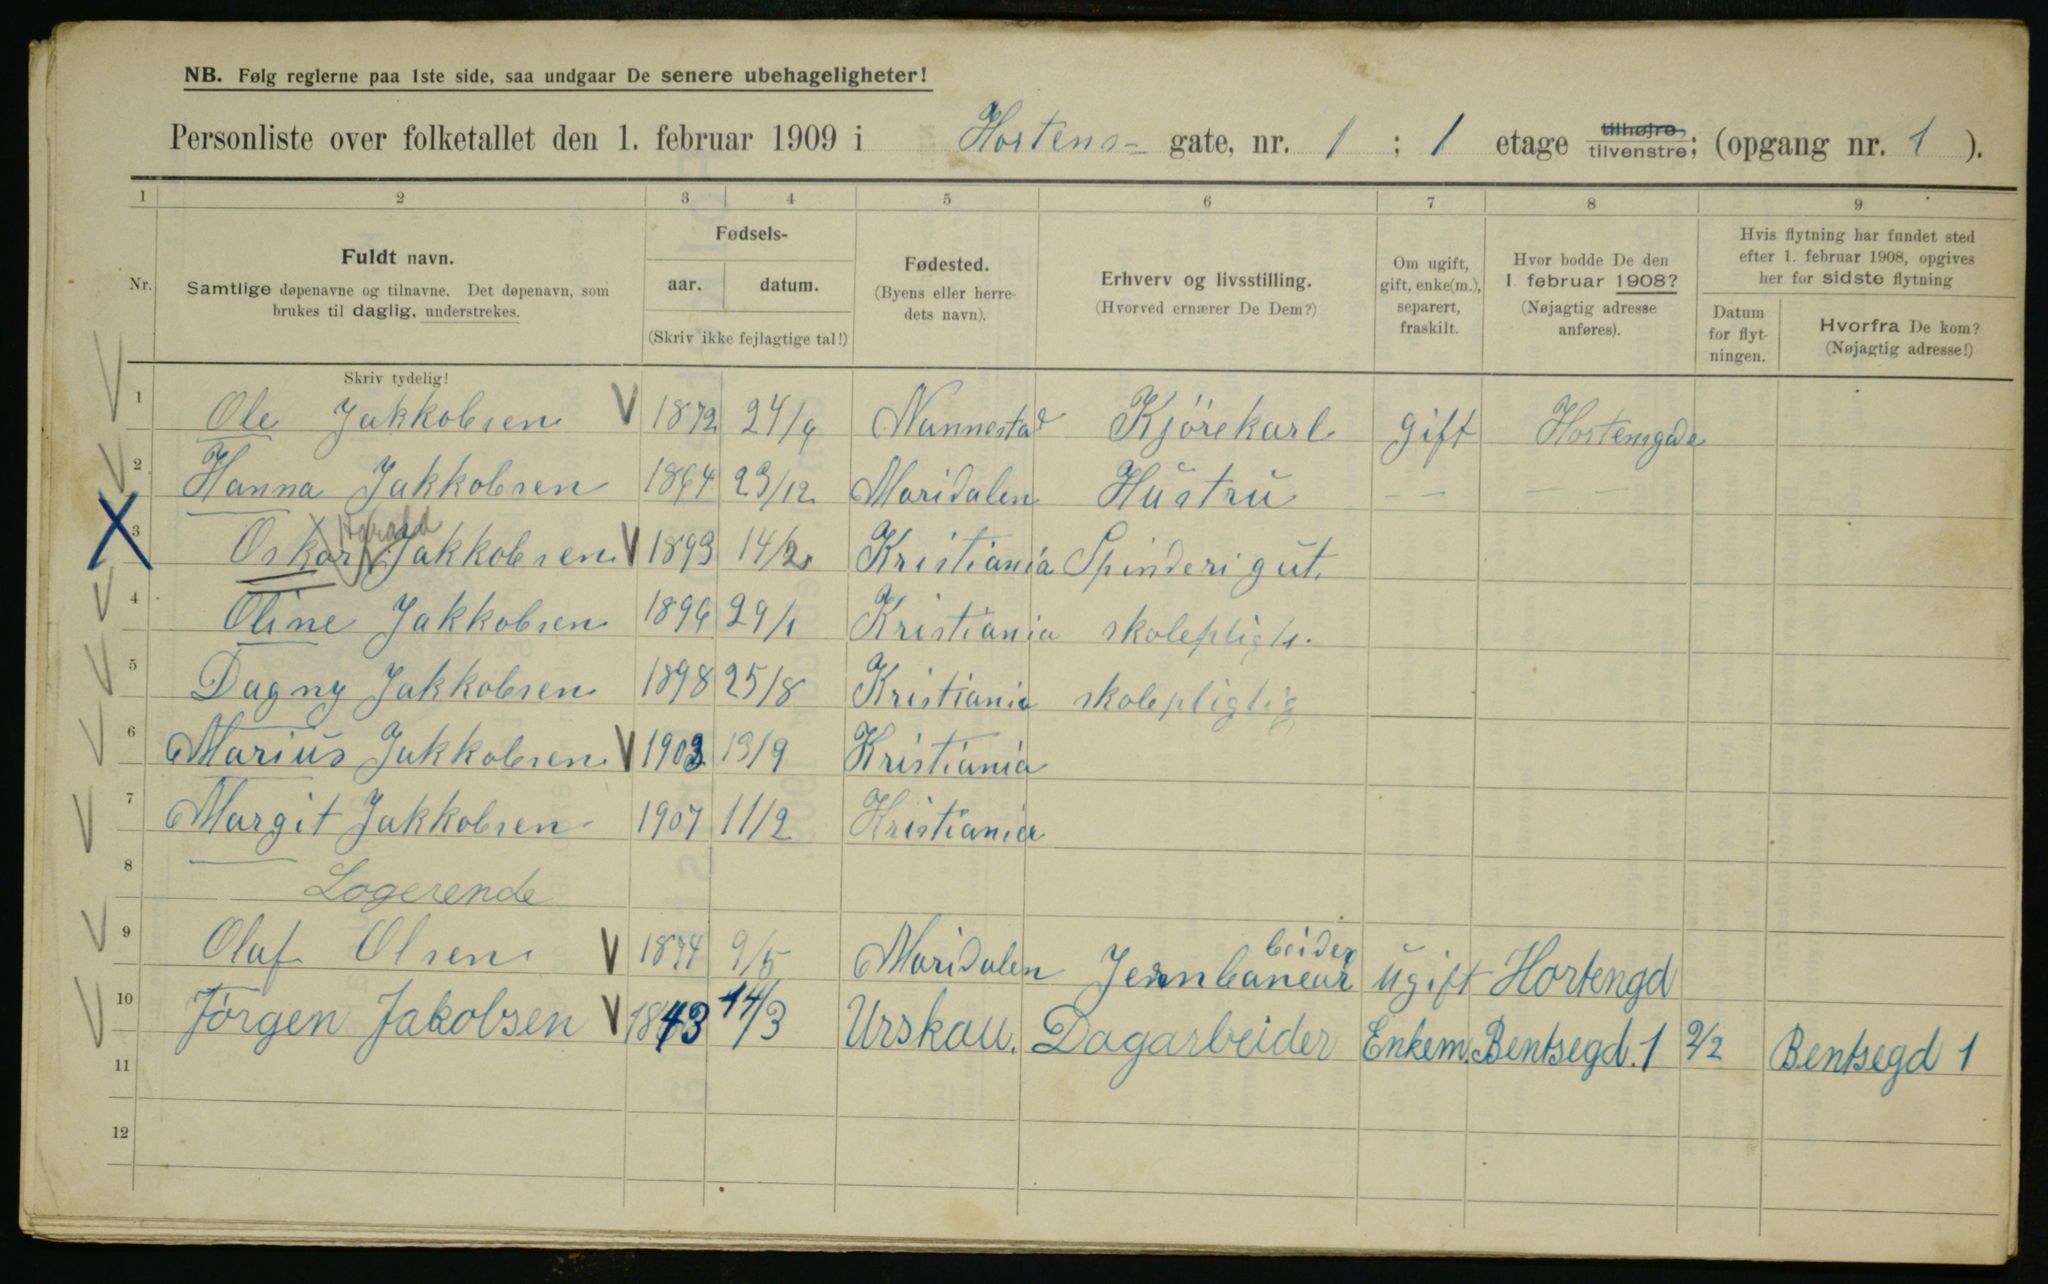 NB. Følg reglerne paa 1ste side, saa undgaar De senere ubehageligheter!
Personliste over folketallet den 1. februar 1909 i Hortens- gate, nr. 1 ; 1 etage tilhøjre, tilvenstre; (opgang nr. 1 ).
1 2 3 4 5 6 7 8 9
Nr.
Fuldt navn.
Samtlige døpenavne og tilnavne. Det døpenavn, som
brukes til daglig, understrekes.
Fødsels-
aar. datum.
(Skriv ikke fejlagtige tal!)
Fødested.
(Byens eller herre-
dets navn).
Erhverv og livsstilling.
(Hvorved ernærer De Dem?)
Om ugift,
gift, enke(m.),
separert,
fraskilt.
Hvor bodde De den
1 februar 1908?
(Nøjagtig adresse
anføres).
Hvis flytning har fundet sted
efter 1. februar 1908, opgives
her for sidste flytning
Datum
for flyt-
ningen.
Hvorfra De kom?
(Nøjagtig adresse!)
Skriv tydelig!
1 Ole Jakkobsen V 1872 24/9 Nannestad Kjörekarl gift Hortensgade
2 Hanna Jakkobsen 1864 23/12 Maridalen Hustru – – – –
Harald
3 Oskar Jakkobsen V 1893 14/2 Kristiania Spinderigut.
4 Oline Jakkobsen 1896 29/1 Kristiania skolepligt.
5 Dagny Jakkobsen 1898 25/8 Kristiania skolepligtig
6 Marius Jakkobsen V 1903 13/9 Kristiania
7 Margit Jakkobsen 1907 11/2 Kristiania
8 Logerende
beider
9 Olaf Olsen V 1874 9/5 Maridalen Jernbanear ugift Hortengd
10 Jørgen Jakobsen V 1843 14/3 Urskau. Dagarbeider Enkem. Bentsegd. 1 2/2 Bentsegd 1
11
12